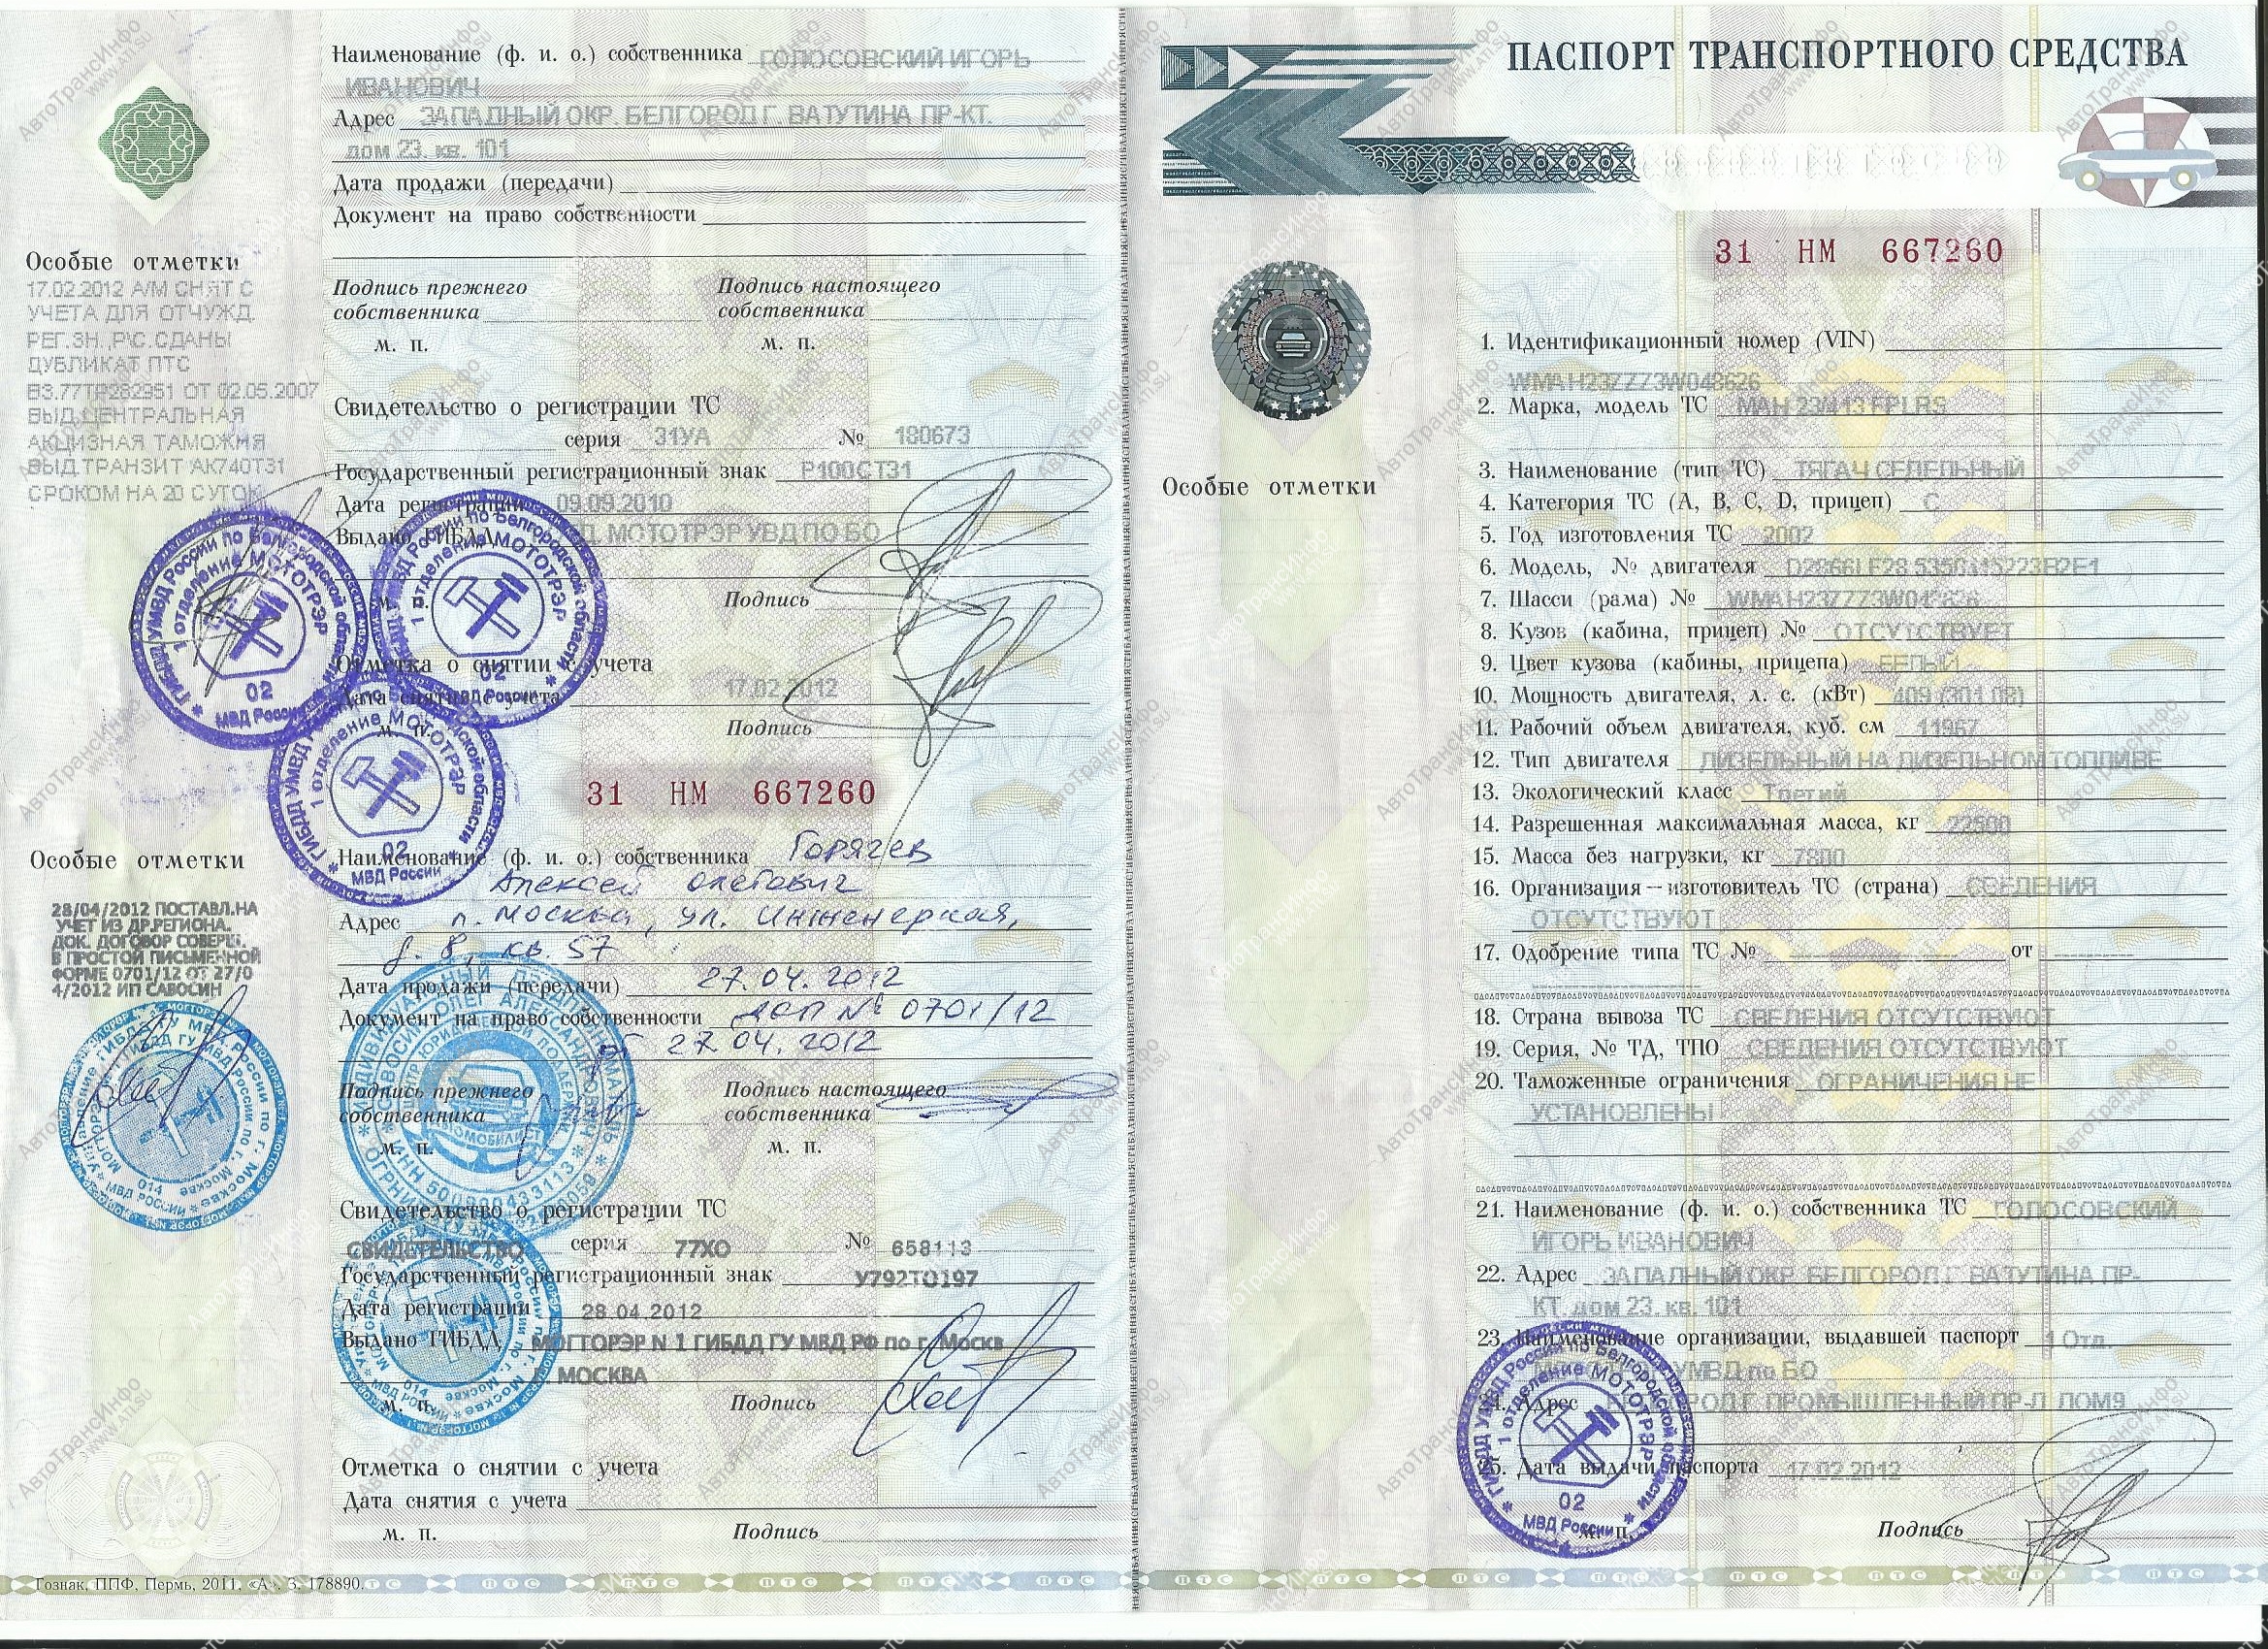 Наименование (ф. и. о.) собственника ГОЛОСОВСКИЙ ИГОРЬ
ИВАНОВИЧ
Адрес ЗАПАДНЫЙ ОКР. БЕЛГОРОД Г. ВАТУТИНА ПР-КТ.
дом 23. кв. 101
Дата продажи (передачи)
Документ на право собственности
Подпись прежнего
собственника
Подпись настоящего
собственника
м. п.
м. п.
Особые отметки
17.02.2012 А/М СНЯТ С
УЧЕТА ДЛЯ ОТЧУЖД.
РЕГ.ЗН.,Р\С.СДАНЫ
ДУБЛИКАТ ПТС
ВЗ.77ТР282951 ОТ 02.05.2007
ВЫД.ЦЕНТРАЛЬНАЯ
АКЦИЗНАЯ ТАМОЖНЯ
ВЫД.ТРАНЗИТ АК740Т31
СРОКОМ НА 20 СУТОК
Свидетельство о регистрации ТС
серия 31УА № 180673
Государственный регистрационный знак Р100СТ31
Дата регистрации 09.09.2010
Выдано ГИБДД МОТОТРЭР УВД ПО БО
Подпись
Отметка о снятии с учета
Дата снятия с учета 17.02.2012
Подпись
31 НМ 667260
Особые отметки
28/04/2012 ПОСТАВЛ.НА
УЧЕТ ИЗ ДР.РЕГИОНА.
ДОК. ДОГОВОР СОВЕРШ.
В ПРОСТОЙ ПИСЬМЕННОЙ
ФОРМЕ 0701/12 ОТ 27/0
4/2012 ИП САВОСИН
Наименование (ф. и. о.) собственника Горячев
Алексей Олегович
Адрес г. Москва, ул. Инженерная,
д. 8, кв. 57
Дата продажи (передачи) 27.04.2012
Документ на право собственности ДКП № 0701/12
от 27.04.2012
Подпись прежнего
собственника
Подпись настоящего
собственника
м. п.
м. п.
Свидетельство о регистрации ТС
СВИДЕТЕЛЬСТВО серия 77ХО № 658113
Государственный регистрационный знак У792ТО197
Дата регистрации 28.04.2012
Выдано ГИБДД МОГТОРЭР N 1 ГИБДД ГУ МВД РФ по г. Москв
МОСКВА
м. п.
Подпись
Отметка о снятии с учета
Дата снятия с учета
м. п.
Подпись
Гознак, ППФ, Пермь, 2011, «А». З. 178890.
ПАСПОРТ ТРАНСПОРТНОГО СРЕДСТВА
31 НМ 667260
Особые отметки
1. Идентификационный номер (VIN)
WMAH23ZZZ3W048626
2. Марка, модель ТС МАН 23/413 FPLRS
3. Наименование (тип ТС) ТЯГАЧ СЕДЕЛЬНЫЙ
4. Категория ТС (А, В, С, D, прицеп) С
5. Год изготовления ТС 2002
6. Модель, № двигателя D2866LF28 5350415223B2E1
7. Шасси (рама) № WMAH23ZZZ3W048626
8. Кузов (кабина, прицеп) № ОТСУТСТВУЕТ
9. Цвет кузова (кабины, прицепа) БЕЛЫЙ
10. Мощность двигателя, л. с. (кВт) 409 (301.08)
11. Рабочий объем двигателя, куб. см 11967
12. Тип двигателя ДИЗЕЛЬНЫЙ НА ДИЗЕЛЬНОМ ТОПЛИВЕ
13. Экологический класс Третий
14. Разрешенная максимальная масса, кг 22500
15. Масса без нагрузки, кг 7800
16. Организация – изготовитель ТС (страна) СВЕДЕНИЯ
ОТСУТСТВУЮТ
17. Одобрение типа ТС № от
18. Страна вывоза ТС СВЕДЕНИЯ ОТСУТСТВУЮТ
19. Серия, № ТД, ТПО СВЕДЕНИЯ ОТСУТСТВУЮТ
20. Таможенные ограничения ОГРАНИЧЕНИЯ НЕ
УСТАНОВЛЕНЫ
21. Наименование (ф. и. о.) собственника ТС ГОЛОСОВСКИЙ
ИГОРЬ ИВАНОВИЧ
22. Адрес ЗАПАДНЫЙ ОКР. БЕЛГОРОД Г. ВАТУТИНА ПР-
КТ. дом 23. кв. 101
23. Наименование организации, выдавшей паспорт 1 Отд.
УМВД по БО
24. Адрес ПРОМЫШЛЕННЫЙ ПР-Д ДОМ9
25. Дата выдачи паспорта 17.02.2012
м. п.
Подпись